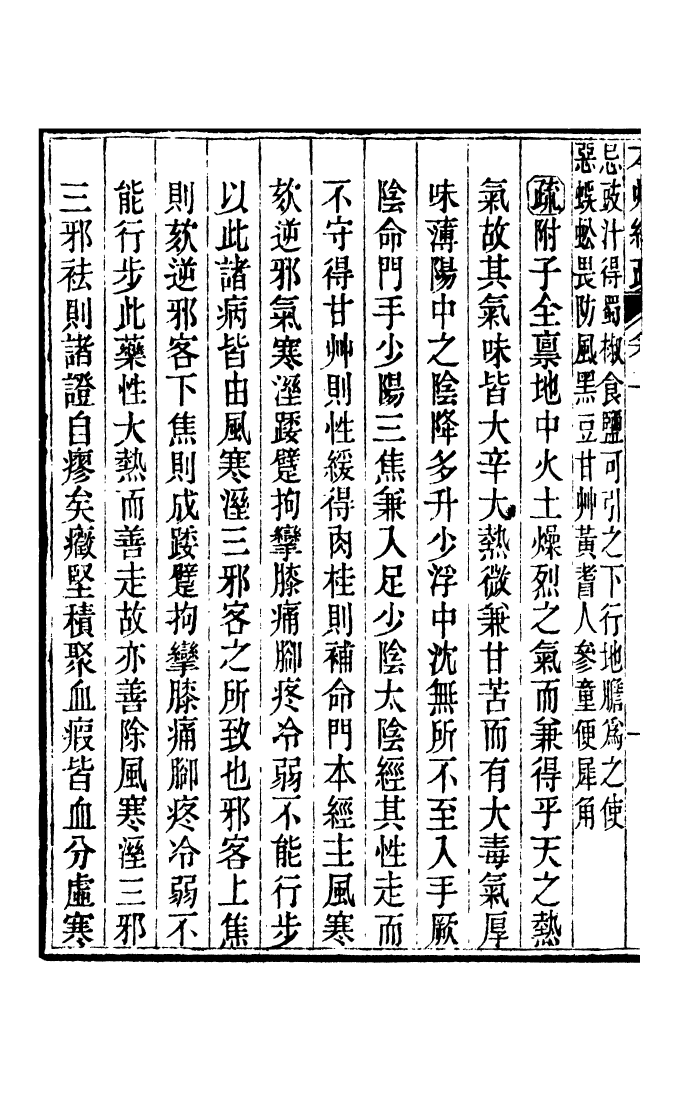 忌豉汁得蜀椒食鹽可引之下行地膽爲之使
惡蜈蚣畏防風黑豆甘艸黃耆人參童便犀角
疏附子全稟地中火土燥烈之氣而兼得乎天之熱
氣故其氣味皆大辛大熱微兼甘苦而有大毒氣厚
味薄陽中之陰降多升少浮中沈無所不至入手厥
陰命門手少陽三焦兼入足少陰太陰經其性走而
不守得甘艸則性緩得肉桂則補命門本經主風寒
欬逆邪氣寒溼踒躄拘攣膝痛腳疼冷弱不能行步
以此諸病皆由風寒溼三邪客之所致也邪客上焦
則欬逆邪客下焦則成踒躄拘攣膝痛腳疼冷弱不
能行步此藥性大熱而善走故亦善除風寒溼三邪
三邪祛則諸證自瘳矣癥堅積聚血瘕皆血分虛寒